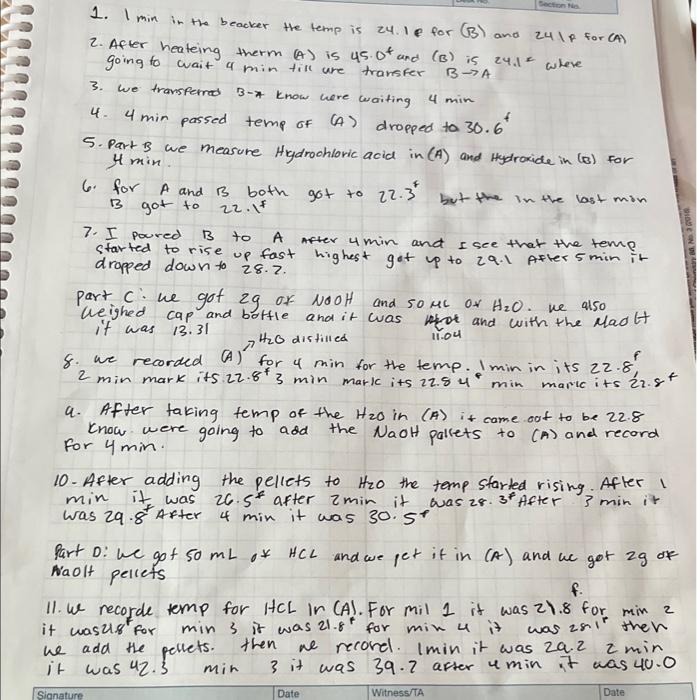 Section No.
1. 1 min in the beacker the temp is 24.1 for (B) and 24.1 for (A)
2. After heateing therm (A) is 45.0° and (B) is 24.1° where
going to wait 4 min till we transfer B→A
3. we transferred B→A know were waiting 4 min
4. 4 min passed temp of (A) dropped to 30.6°
5. Part B we measure Hydrochloric acid in (A) and Hydroxide in (B) for
4 min.
6. for A and B both got to 22.3° but the in the last min
B got to 22.1°
7. I poured B to A After 4 min and I see that the temp
started to rise up fast highest got up to 29.1 After 5 min it
dropped down to 28.7.
Part C: we got 2g of NaOH and 50 mL of H2O. we also
weighed cap and bottle and it was 11.04 and with the NaOH
it was 13.31
H2O distilled
8. we recorded (A) for 4 min for the temp. 1 min in its 22.8°
2 min mark its 22.8° 3 min mark its 22.8 4° min mark its 22.8°
9. After taking temp of the H2O in (A) it came out to be 22.8
know were going to add the NaOH pallets to (A) and record
for 4 min.
10- After adding the pellets to H2O the temp started rising. After 1
min it was 26.5° after 2 min it was 28.3° After 3 min it
was 29.8° After 4 min it was 30.5°
Part D: we got 50 mL of HCL and we put it in (A) and we got 2g of
NaOH pellets
11. we recorde temp for HCL in (A). For mil 1 it was 21.8 for min 2
it was 21.8° for min 3 it was 21.8° for min 4 it was then
we add the pellets. then we recorel. 1min it was 29.2 2 min
it was 42.3 min 3 it was 39.2 after 4 min it was 40.0
Signature Date Witness/TA Date